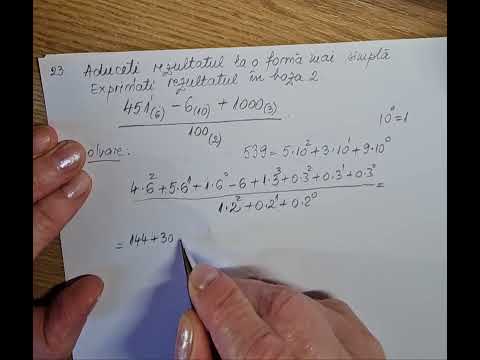 23. Aduceți rezultatul la o formă mai simplă
Exprimați rezultatul în baza 2
451(6) − 6(10) + 1000(3)
100(2)
10⁰=1
olvare:
539 = 5·10² + 3·10¹ + 9·10⁰
4·6² + 5·6¹ + 1·6⁰ − 6 + 1·3³ + 0·3² + 0·3¹ + 0·3⁰ =
1·2² + 0·2¹ + 0·2⁰
= 144 + 30